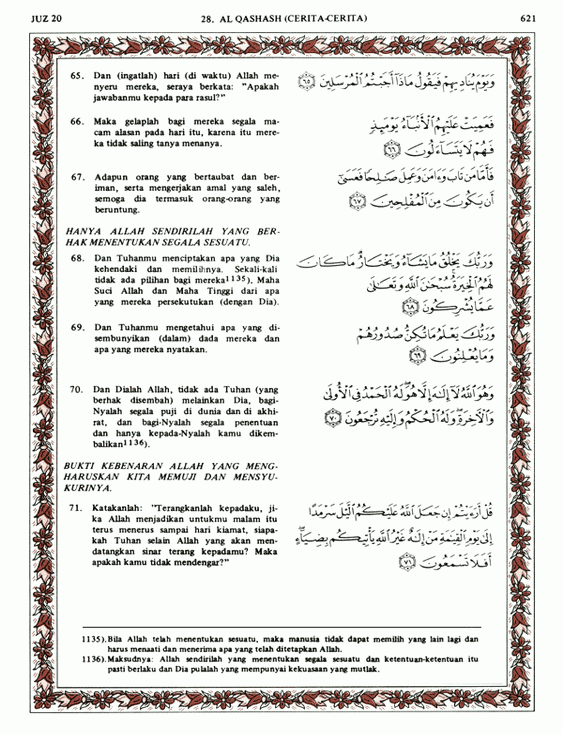 JUZ 20
28. AL QASHASH (CERITA-CERITA)
621
65. Dan (ingatlah) hari (di waktu) Allah me-
nyeru mereka, seraya berkata: "Apakah
jawabanmu kepada para rasul?"
وَيَوْمَ يُنَادِيهِمْ فَيَقُولُ مَاذَآ أَجَبْتُمُ ٱلْمُرْسَلِينَ ﴿٦٥﴾
66. Maka gelaplah bagi mereka segala ma-
cam alasan pada hari itu, karena itu mere-
ka tidak saling tanya menanya.
فَعَمِيَتْ عَلَيْهِمُ ٱلْأَنۢبَآءُ يَوْمَئِذٍ
فَهُمْ لَا يَتَسَآءَلُونَ ﴿٦٦﴾
67. Adapun orang yang bertaubat dan ber-
iman, serta mengerjakan amal yang saleh,
semoga dia termasuk orang-orang yang
beruntung.
فَأَمَّا مَن تَابَ وَءَامَنَ وَعَمِلَ صَـٰلِحًا فَعَسَىٰٓ
أَن يَكُونَ مِنَ ٱلْمُفْلِحِينَ ﴿٦٧﴾
HANYA ALLAH SENDIRILAH YANG BER-
HAK MENENTUKAN SEGALA SESUATU.
68. Dan Tuhanmu menciptakan apa yang Dia
kehendaki dan memilihnya. Sekali-kali
tidak ada pilihan bagi mereka1135), Maha
Suci Allah dan Maha Tinggi dari apa
yang mereka persekutukan (dengan Dia).
وَرَبُّكَ يَخْلُقُ مَا يَشَآءُ وَيَخْتَارُ مَا كَانَ
لَهُمُ ٱلْخِيَرَةُ سُبْحَـٰنَ ٱللَّهِ وَتَعَـٰلَىٰ
عَمَّا يُشْرِكُونَ ﴿٦٨﴾
69. Dan Tuhanmu mengetahui apa yang di-
sembunyikan (dalam) dada mereka dan
apa yang mereka nyatakan.
وَرَبُّكَ يَعْلَمُ مَا تُكِنُّ صُدُورُهُمْ
وَمَا يُعْلِنُونَ ﴿٦٩﴾
70. Dan Dialah Allah, tidak ada Tuhan (yang
berhak disembah) melainkan Dia, bagi-
Nyalah segala puji di dunia dan di akhi-
rat, dan bagi-Nyalah segala penentuan
dan hanya kepada-Nyalah kamu dikem-
balikan1136).
وَهُوَ ٱللَّهُ لَآ إِلَـٰهَ إِلَّا هُوَ لَهُ ٱلْحَمْدُ فِى ٱلْأُولَىٰ
وَٱلْـَٔاخِرَةِ وَلَهُ ٱلْحُكْمُ وَإِلَيْهِ تُرْجَعُونَ ﴿٧٠﴾
BUKTI KEBENARAN ALLAH YANG MENG-
HARUSKAN KITA MEMUJI DAN MENSYU-
KURINYA.
71. Katakanlah: "Terangkanlah kepadaku, ji-
ka Allah menjadikan untukmu malam itu
terus menerus sampai hari kiamat, siapa-
kah Tuhan selain Allah yang akan men-
datangkan sinar terang kepadamu? Maka
apakah kamu tidak mendengar?"
قُلْ أَرَءَيْتُمْ إِن جَعَلَ ٱللَّهُ عَلَيْكُمُ ٱلَّيْلَ سَرْمَدًا
إِلَىٰ يَوْمِ ٱلْقِيَـٰمَةِ مَنْ إِلَـٰهٌ غَيْرُ ٱللَّهِ يَأْتِيكُم بِضِيَآءٍ
أَفَلَا تَسْمَعُونَ ﴿٧١﴾
1135). Bila Allah telah menentukan sesuatu, maka manusia tidak dapat memilih yang lain lagi dan
harus menaati dan menerima apa yang telah ditetapkan Allah.
1136). Maksudnya: Allah sendirilah yang menentukan segala sesuatu dan ketentuan-ketentuan itu
pasti berlaku dan Dia pulalah yang mempunyai kekuasaan yang mutlak.